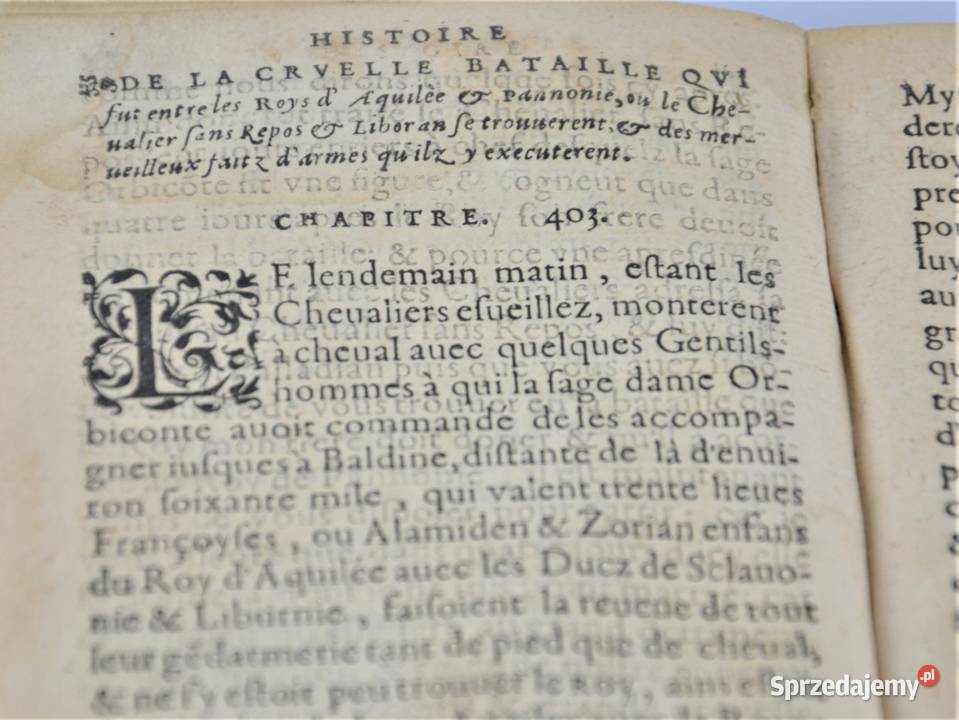 HISTOIRE
DE LA CRVELLE BATAILLE QVI
fut entre les Roys d'Aquilée & Pannonie, ou le Che-
ualier sans Repos & Liboran se trouuerent, & des mer-
ueilleux faitz d'armes qu'ilz y executerent.
CHAPITRE. 403.
LE lendemain matin, eſtant les
Cheualiers eſueillez, monterent
a cheual auec quelques Gentils-
hommes à qui la ſage dame Or-
biconte auoit commandé de les accompa-
gner iuſques à Baldine, diſtante de là d'enui-
ron ſoixante mile, qui valent trente lieues
Françoyſes, ou Alamiden & Zorian enfans
du Roy d'Aquilée auec les Ducz de Sclauo-
nie & Liburnie, faiſoient la reueue de tout
leur gédarmerie tant de pied que de cheual,
& ne s'y eſtoit peu trouuer le Roy, ains
My
dere
ſtoy
pre
pou
luy
au
gr
qu
to
d'
Sprzedajemy.pl